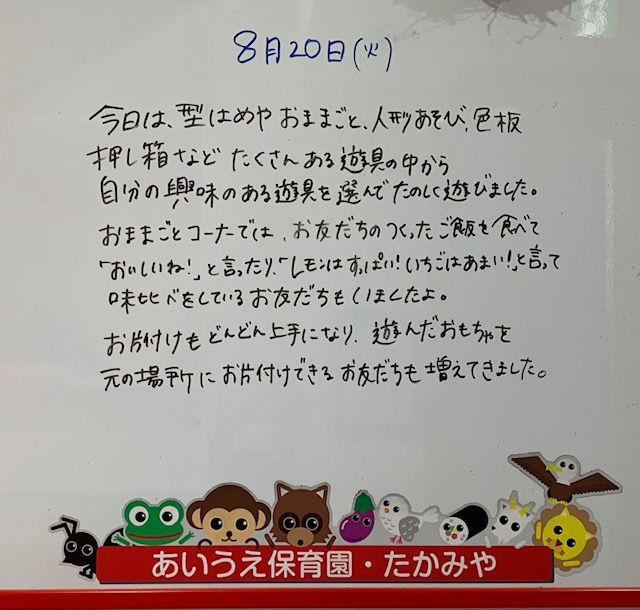 8月20日(火)
今日は、型はめや おままごと、人形あそび、色板
押し箱など たくさんある遊具の中から
自分の興味のある遊具を選んでたのしく遊びました。
おままごとコーナーでは、お友だちのつくったご飯を食べて
「おいしいね!」と言ったり、「レモンはすっぱい!いちごはあまい!」と言って
味比べをしているお友だちもいましたよ。
お片付けもどんどん上手になり、遊んだおもちゃを
元の場所にお片付けできるお友だちも増えてきました。
あいうえ保育園・たかみや